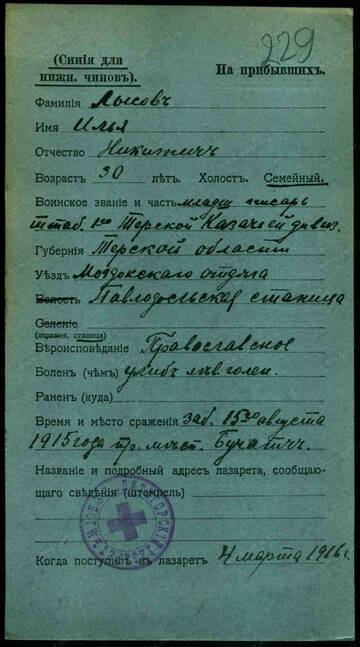 229
(Синія для
нижн. чиновъ).
На прибывшихъ.
Фамилія Лысовъ
Имя Илья
Отчество Никитичъ
Возрастъ 30 лѣтъ. Холост. Семейный.
Воинское званіе и часть младш. писарь
штаб. Терской Казачьей дивиз.
Губернія Терской области
Уѣздъ Моздокскаго отдѣла
Волость Павлодольская станица
Селеніе
(деревня, станица)
Вѣроисповѣданіе Православное
Боленъ (чѣмъ) ушибъ лѣв голен.
Раненъ (куда)
Время и мѣсто сраженія заб. 15го августа
1915 года пр. мѣст. Бучачъ.
Названіе и подробный адресъ лазарета, сообщаю-
щаго свѣдѣнія (штемпель)
Когда поступилъ въ лазаретъ 4 марта 1916 г.